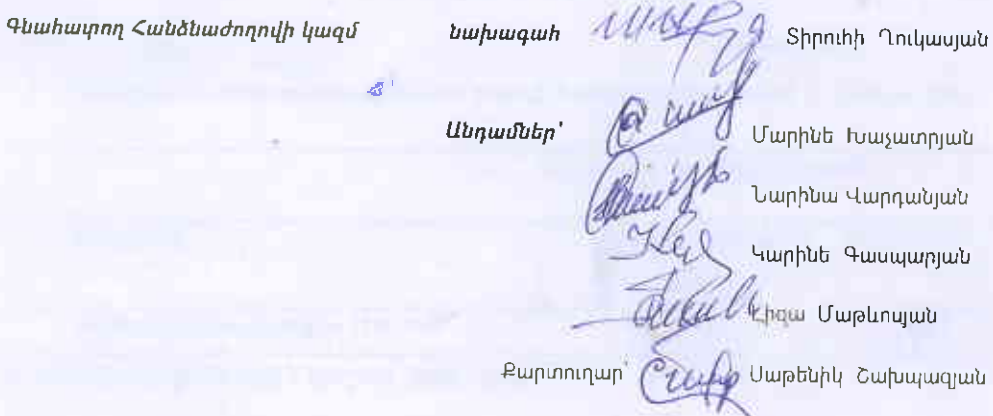 Գնահատող Հանձնաժողովի կազմ նախագահ Տիրուհի Ղուկասյան
Անդամներ՝ Մարինե Խաչատրյան
Նարինա Վարդանյան
Կարինե Գասպարյան
Լիզա Մաթևոսյան
Քարտուղար՝ Սաթենիկ Շախպազյան